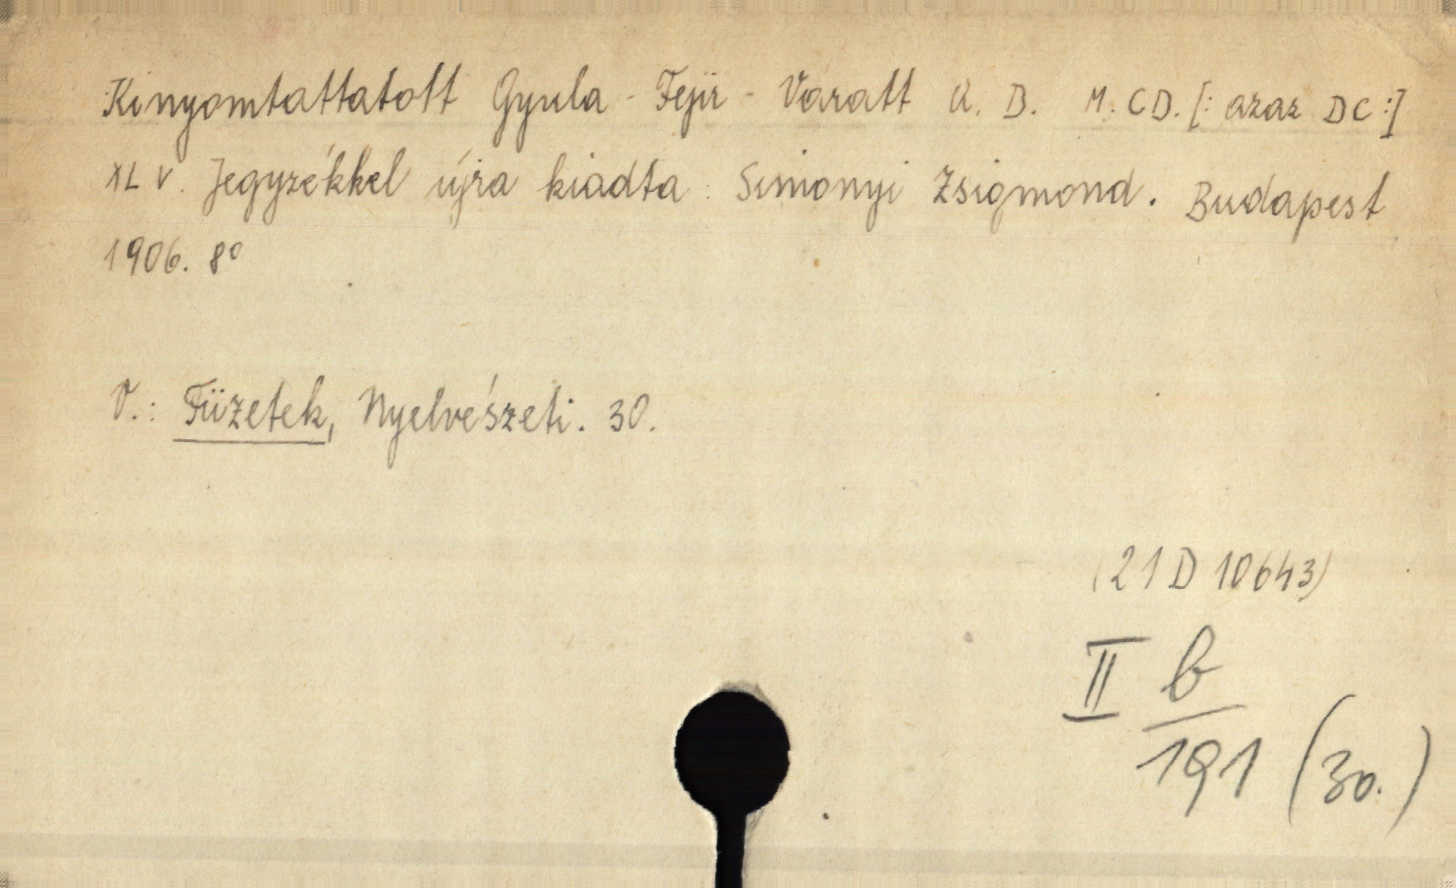 Kinyomtattatott Gyula-Fejir-Varatt A. D. M. CD. [: azaz DC :]
XLV. Jegyzékkel újra kiadta: Simonyi Zsigmond. Budapest
1906. 8°
V.: Füzetek, Nyelvészeti. 30.
(21 D 10643)
II b
191 (30.)